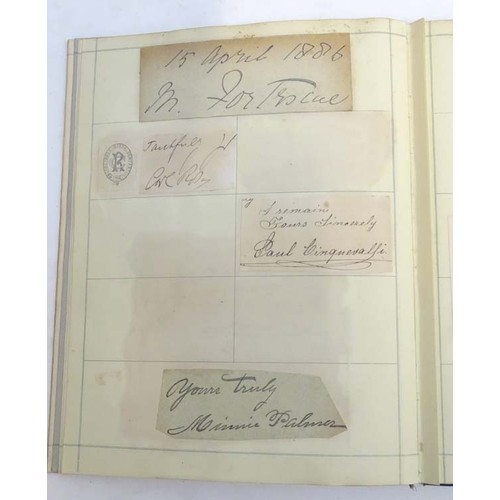 15 April 1886
M. Fortescue
R
Faithfully
I remain
Yours Sincerely
Paul Cinquevalli
Yours truly
Minnie Palmer